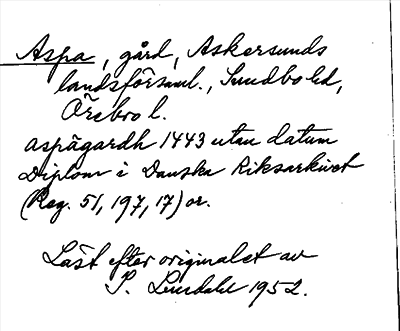 Aspa, gård, Askersunds
landsförsaml., Sundbo hd,
Örebro l.
aspägardh 1443 utan datum
Diplom i Danska Riksarkivet
(Reg. 51, 197, 17) or.
Läst efter originalet av
P. 1952.